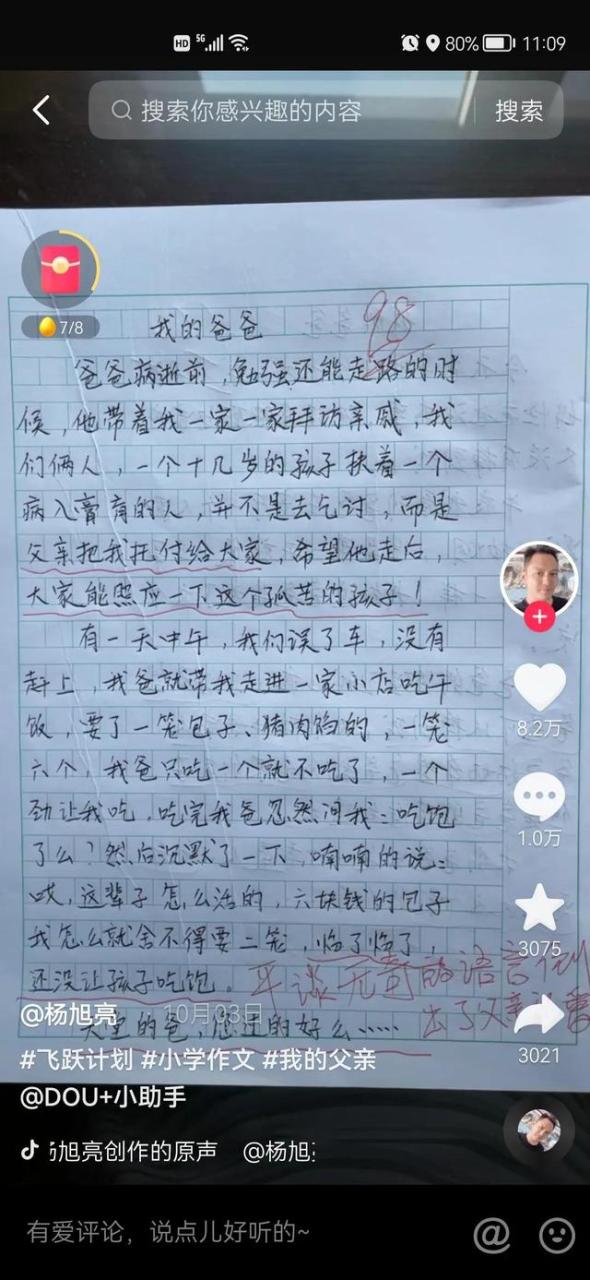 HD 5G 80% 11:09
搜索你感兴趣的内容 搜索
7/8
我的爸爸
98
爸爸病逝前,勉强还能走路的时
候,他带着我一家一家拜访亲戚,我
们俩人,一个十几岁的孩子扶着一个
病入膏肓的人,并不是去乞讨,而是
父亲把我托付给大家,希望他走后,
大家能照应一下这个孤苦的孩子!
有一天中午,我们误了车,没有
赶上,我爸就带我走进一家小店吃午
饭,要了一笼包子、猪肉馅的,一笼
六个,我爸只吃一个就不吃了,一个
劲让我吃,吃完我爸忽然问我:吃饱
了么?然后沉默了一下,喃喃的说:
哎,这辈子怎么活的,六块钱的包子
我怎么就舍不得要二笼,临了临了,
还没让孩子吃饱。
平淡无奇的语言
出了父亲
天堂的爸,您过的好么……
8.2万
1.0万
3075
3021
@杨旭亮 10月03日
#飞跃计划 #小学作文 #我的父亲
@DOU+小助手
杨旭亮创作的原声 @杨旭
有爱评论,说点儿好听的~